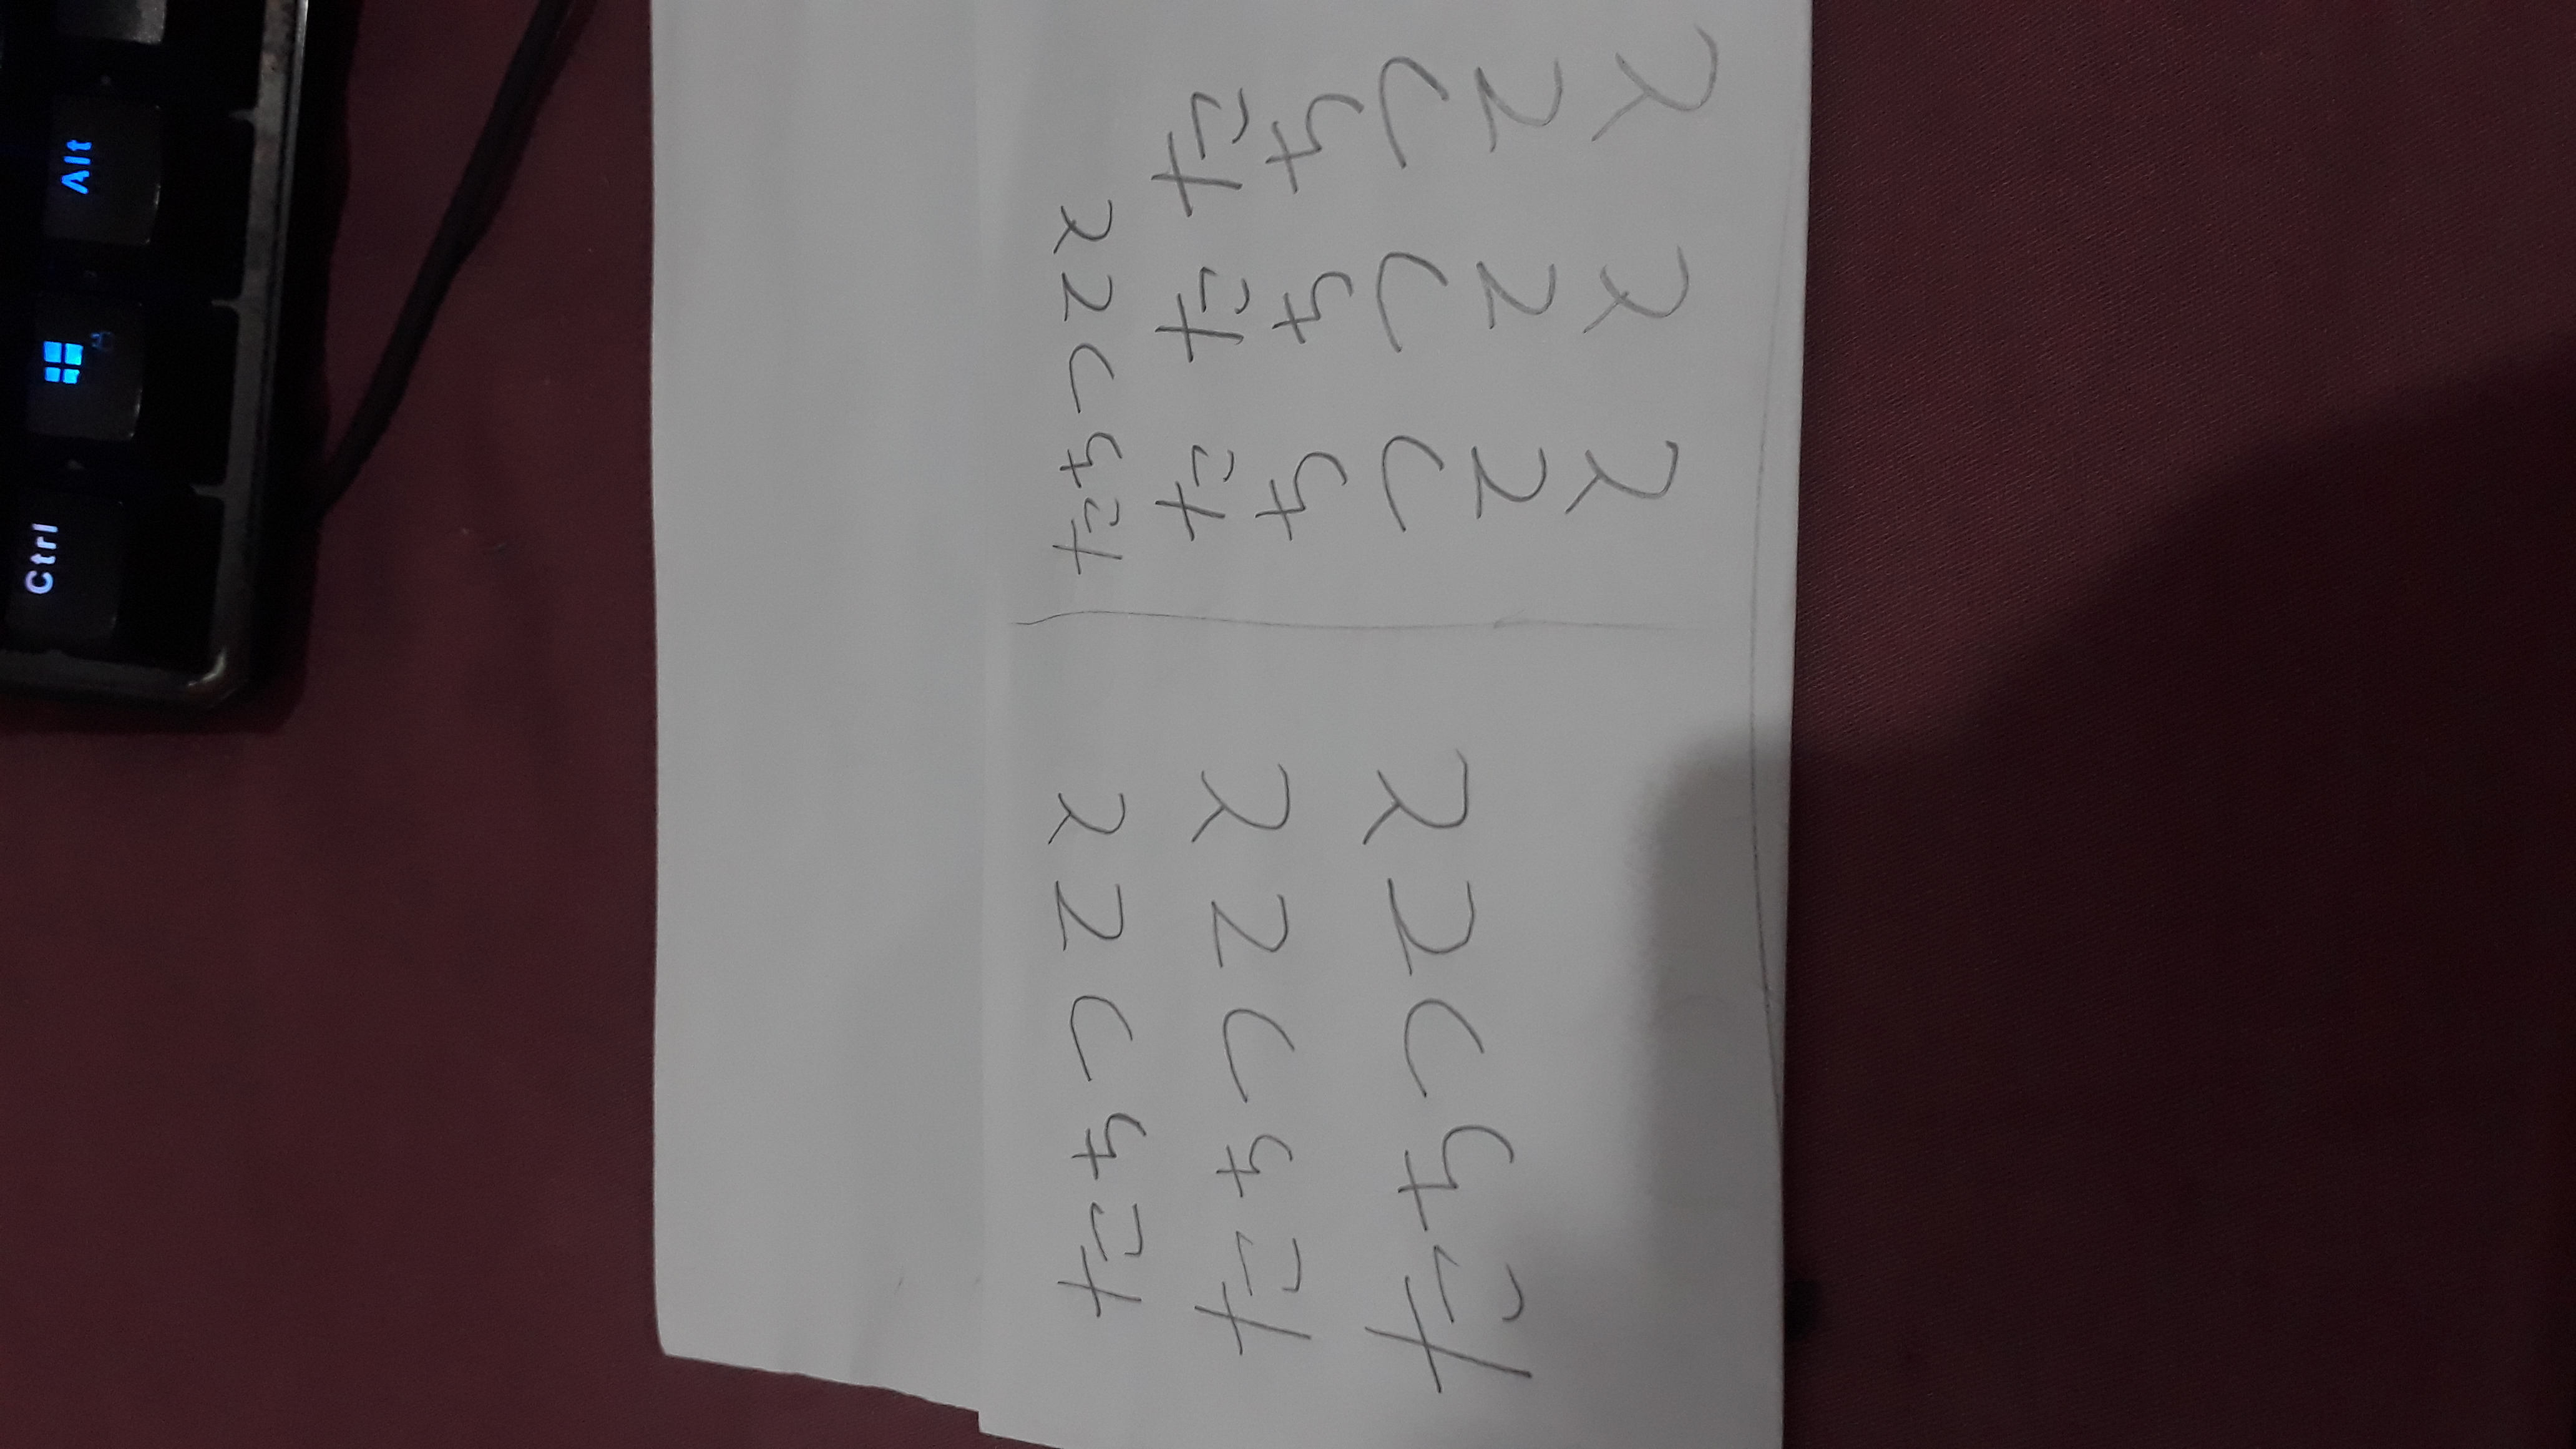 Ctrl Alt
たちつてと
たちつてと
たちつてと
たちつてと
た た た
ち ち ち
つ つ つ
て て て
と と と